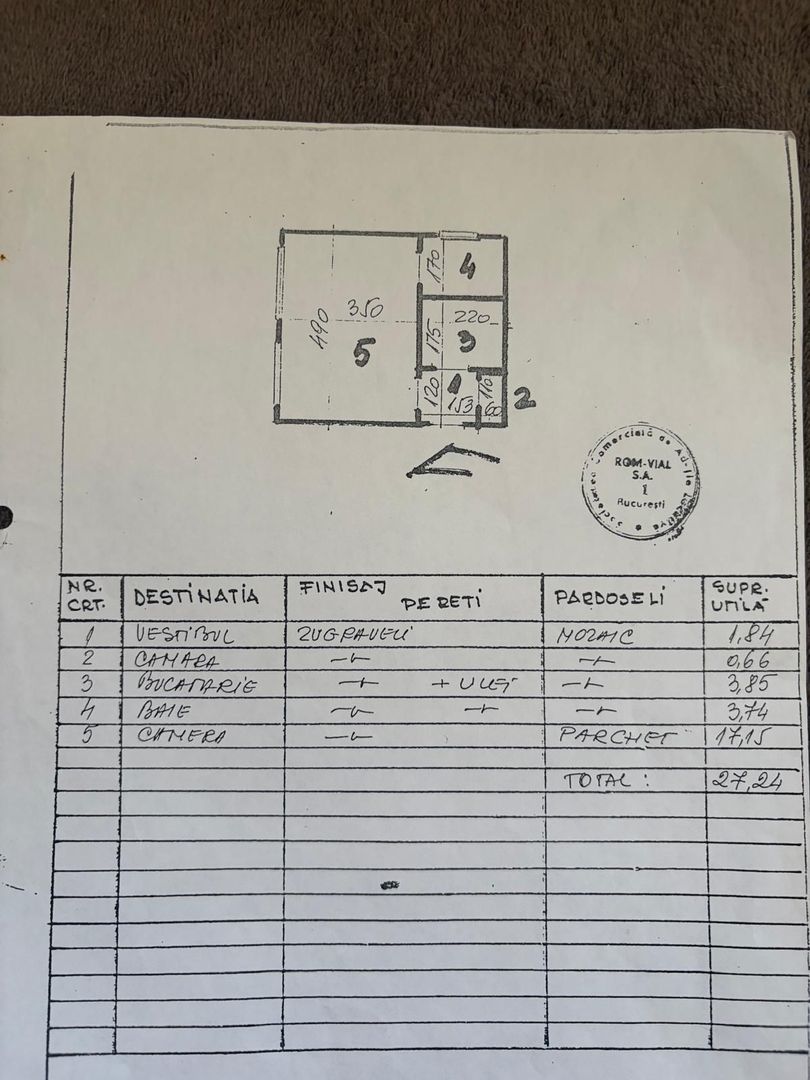 170
4
350
490
220
175
3
5
1
110
120
153
60
2
Societatea Comercială de Ad-ție Locativă
ROM-VIAL
S.A.
1
București
NR. CRT. DESTINATIA FINISAJ PERETI PARDOSELI SUPR. UTILĂ
1 VESTIBUL ZUGRAVELI MOZAIC 1,84
2 CAMARA —〃— —〃— 0,66
3 BUCATARIE —〃— + ULEI —〃— 3,85
4 BAIE —〃— —〃— —〃— 3,74
5 CAMERA —〃— PARCHET 17,15
TOTAL: 27,24